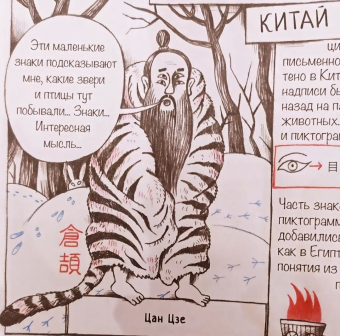 КИТАЙ
Эти маленькие
знаки подсказывают
мне, какие звери
и птицы тут
побывали... Знаки...
Интересная
мысль...
письменно
тено в Кит
надписи бы
назад на па
животных.
и пиктогра
目
Часть знако
пиктограмм
добавились
как в Египт
понятия из
倉
頡
Цан Цзе